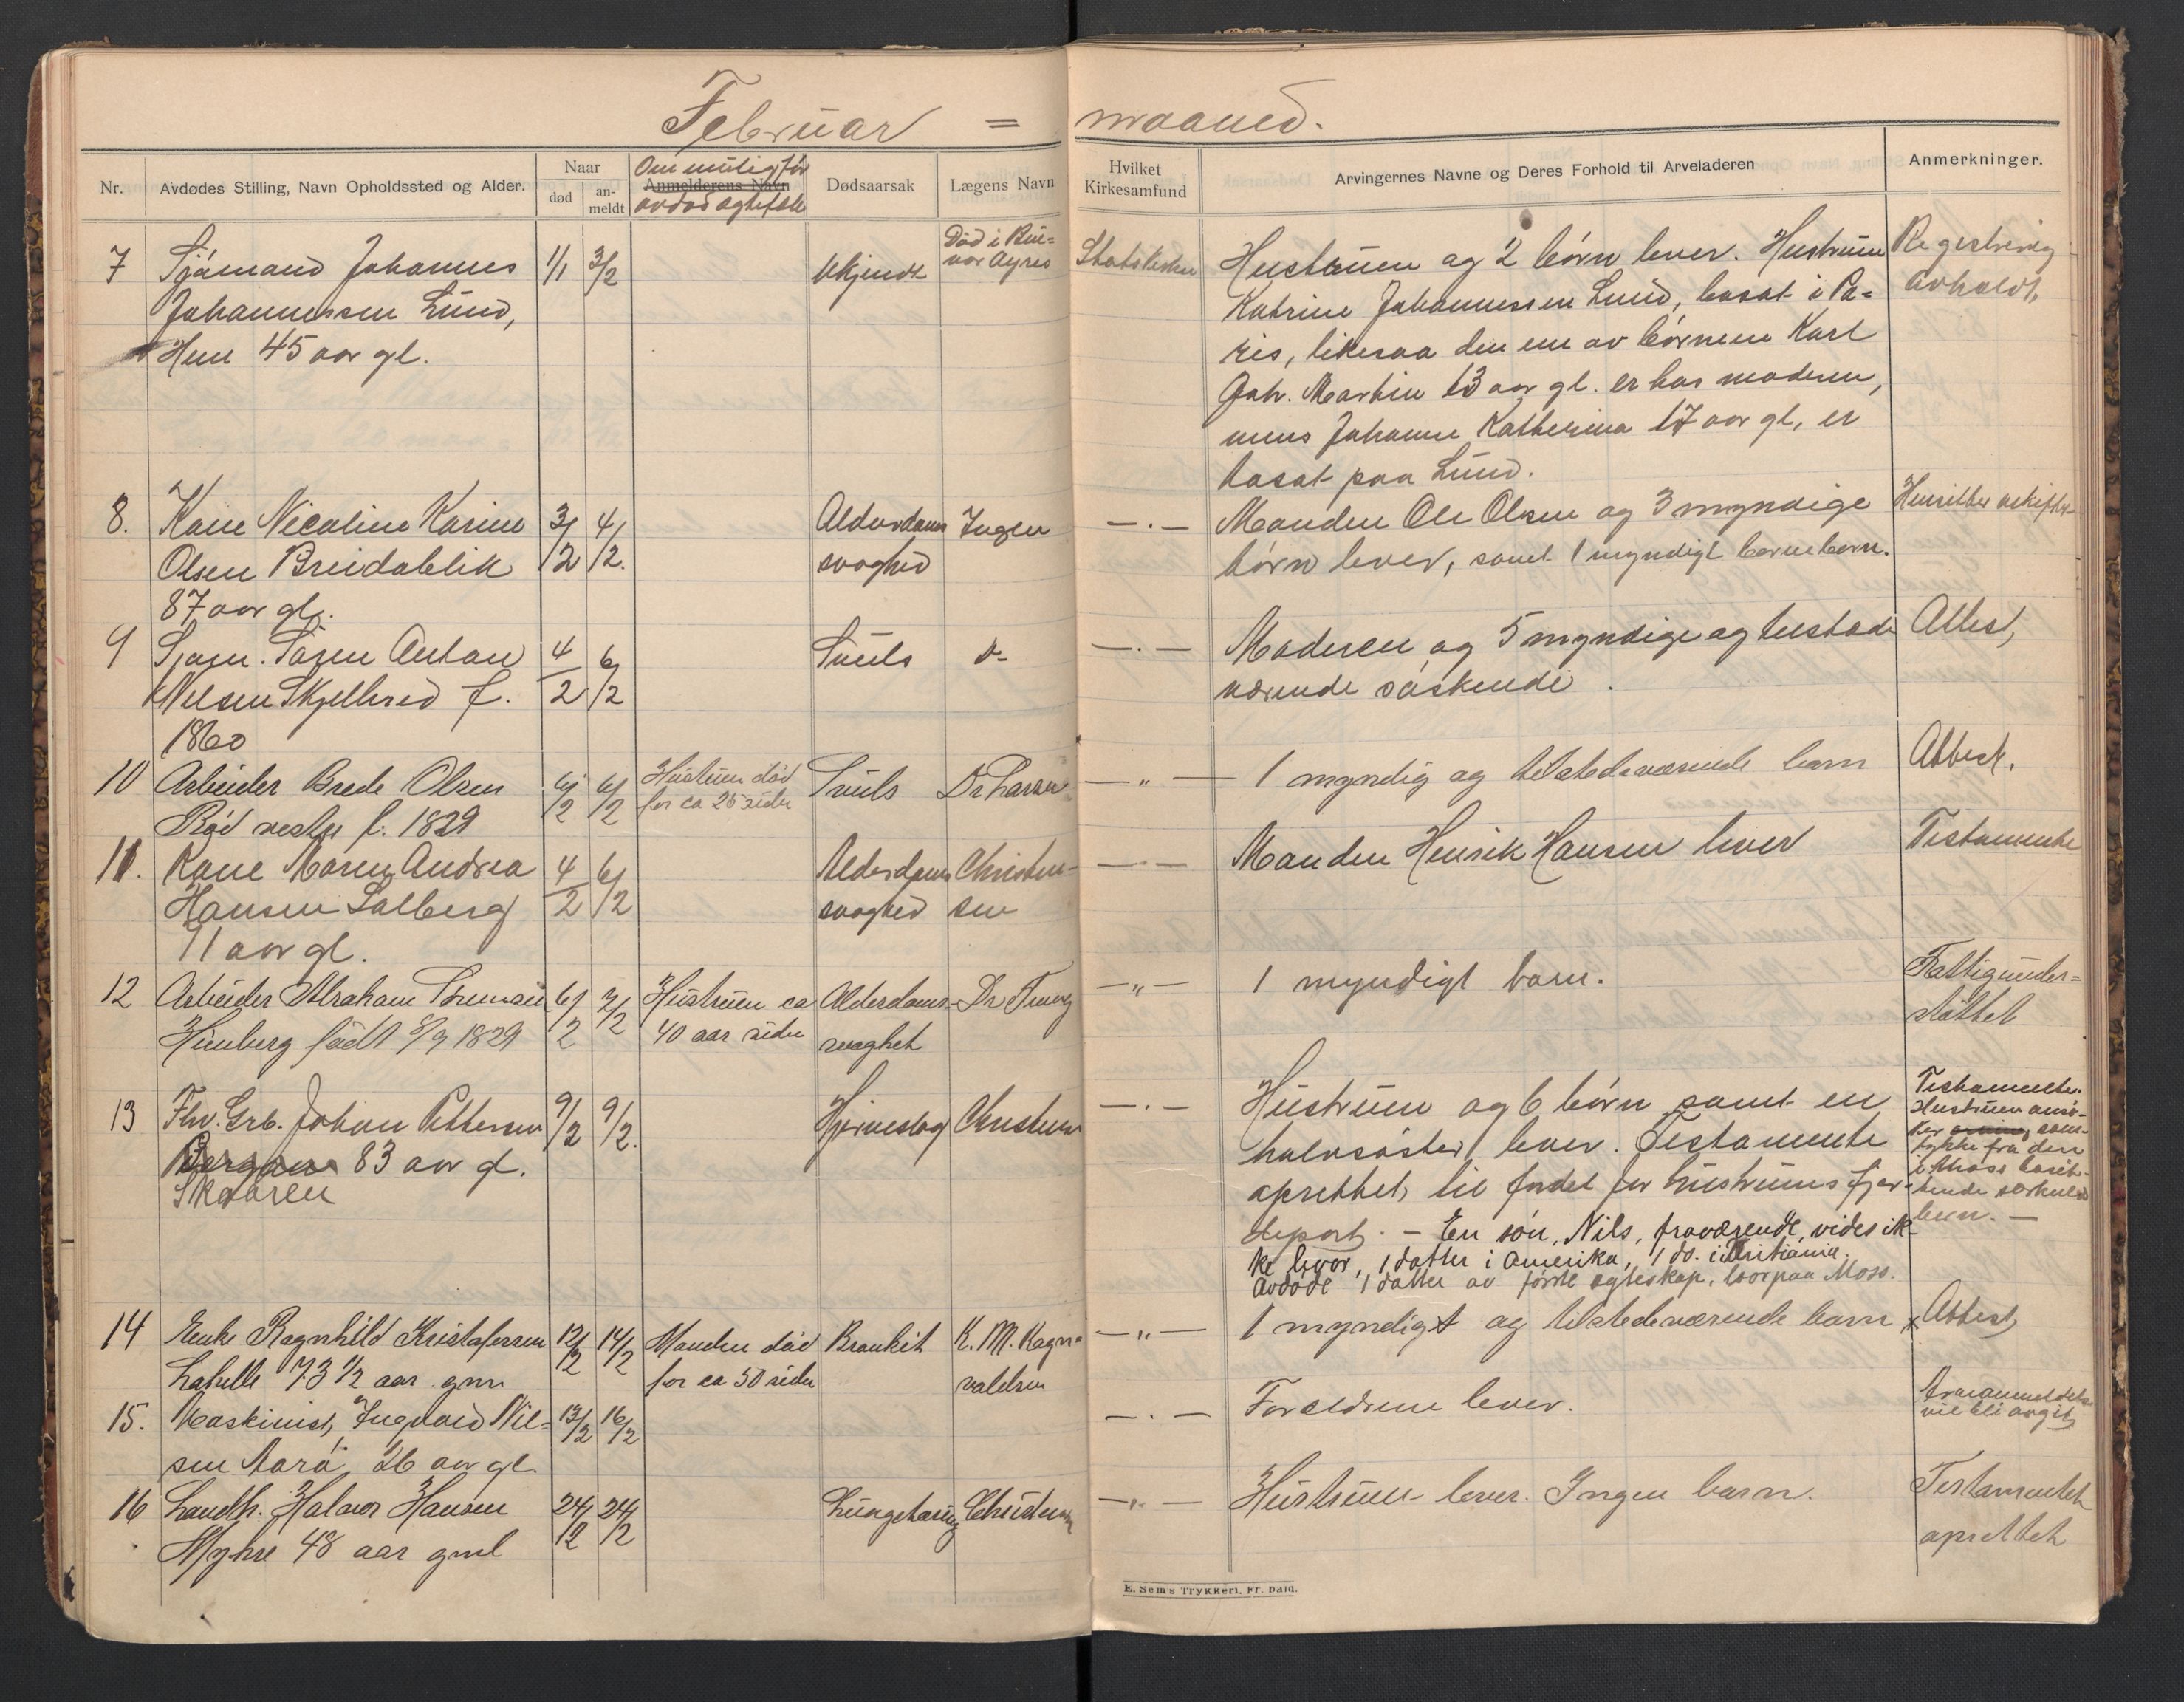 Februar = maaned.
Nr.
Avdødes Stilling, Navn Opholdssted og Alder.
Naar
død
an-
meldt
Om mulig før
Anmelderens Navn
avdød ægtefelle
Dødsaarsak
Lægens Navn
Hvilket
Kirkesamfund
Arvingernes Navne og Deres Forhold til Arveladeren
Anmerkninger.
7 Sjømand Johannes
Johannessen Lund,
Hun 45 aar gl.
1/1 3/2
Ukjendt
Død i Bue-
nos Ayres
Statskirken
Hustruen og 2 børn lever. Hustruen
Katrine Johannessen Lund, bosat i Pa-
ris, likesaa den ene av børnene Karl
Joh. Martin 13 aar gl. er hos moderen,
mens Johanne Katherina 17 aar gl, er
bosat paa Lund.
Registrering
avholdt.
8. Kone Nicoline Karine
Olsen Breidablik
87 aar gl.
3/2 4/2.
Alderdoms
svaghed
Ingen
— . —
Manden Ole Olsen og 3 myndige
børn lever, samt 1 myndigt barnebarn.
Hensitter uskiftet
9 Sjøm. Søren Anton
Nilsen Skjellerød f.
1860
4/2 6/2
Tuuls
do
— . —
Moderen og 5 myndige og tilstede
værende søskende.
Attest,
10 Arbeider Brede Olsen
Rød vestre f. 1829
6/2 6/2
Hustruen død
for ca 25 siden
Tuuls
Dr Larsen
— „ —
1 myndig og tilstedeværende barn
Attest.
11. Kone Maren Andrea
Hansen Solberg
71 aar gl.
4/2 6/2
Alderdoms
svaghed
Christen-
sen
— . —
Manden Henrik Hansen lever
Testamente
12 Arbeider Abraham Sørensen
Himberg født 8/9 1829
6/2 7/2
Hustruen ca
40 aar siden
Alderdoms-
svaghet
Dr
— „ —
1 myndigt barn.
Fattigunder-
støttet
13 Fhv. Grb. Johan Pettersen
Bergan 83 aar gl.
Skaaren
9/2 9/2.
Hjerneslag
Christensen
— . —
Hustruen og 6 børn samt en
halvsøster lever. Testamente
oprettet, til fordel for hustruens fjer-
depart. — En søn, Nils, fraværende, vides ik-
ke lever, 1 datter i Amerika, 1 do. i Kristiania.
Avdøde 1 datter av første egteskap, bor paa Moss.
Testamente.
Hustruen ansø-
ker sam-
tykke fra den
i Moss bosit-
tende særkulds
barn. —
14 Enke Ragnhild Kristofersen
Labelle 73 1/2 aar gml
12/2 14/2
Manden død
for ca 50 siden
Brankit
K. M. Ragn-
valdsen
— „ —
1 myndigt og tilstedeværende barn
Attest,
15. Maskinist, Ingvald Nil-
sen Aarø, 26 aar gl.
13/2 16/2
— . —
Forældrene lever.
Arveanmeldelse
vil bli avgit
16 Landh. Halvor Hansen
Myhre 48 aar gml
24/2 24/2
Lungetæring
Christensen
— „ —
Hustruen lever. Ingen barn.
Testamentet
oprettet
E. Sem's Trykkeri, Fr.hald.